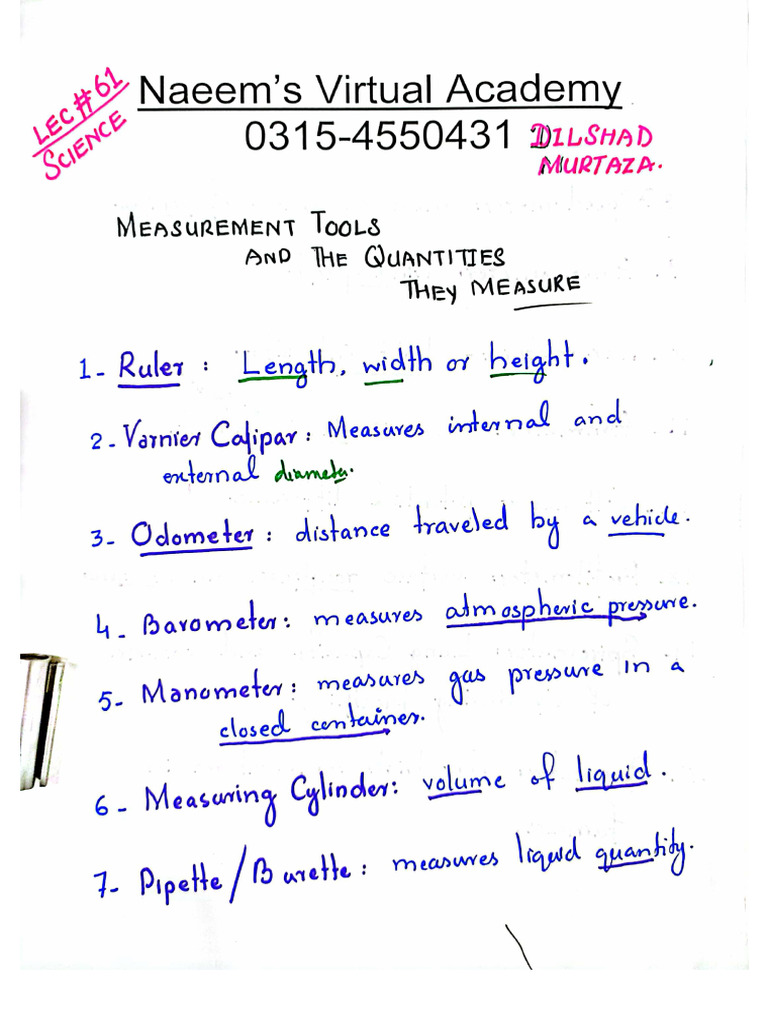 LEC#61
SCIENCE
Naeem's Virtual Academy
0315-4550431
DILSHAD
MURTAZA.
MEASUREMENT TOOLS
AND THE QUANTITIES
THEY MEASURE
1- Ruler : Length, width or height.
2- Varnier Calipar: Measures internal and
external diameter.
3- Odometer: distance traveled by a vehicle.
4- Barometer: measures atmospheric pressure.
5- Manometer: measures gas pressure in a
closed container.
6- Measuring Cylinder: volume of liquid.
7- Pipette/Burette: measures liquid quantity.